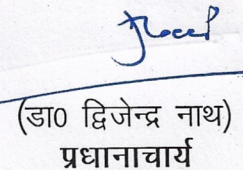 (डा0 द्विजेन्द्र नाथ)
प्रधानाचार्य